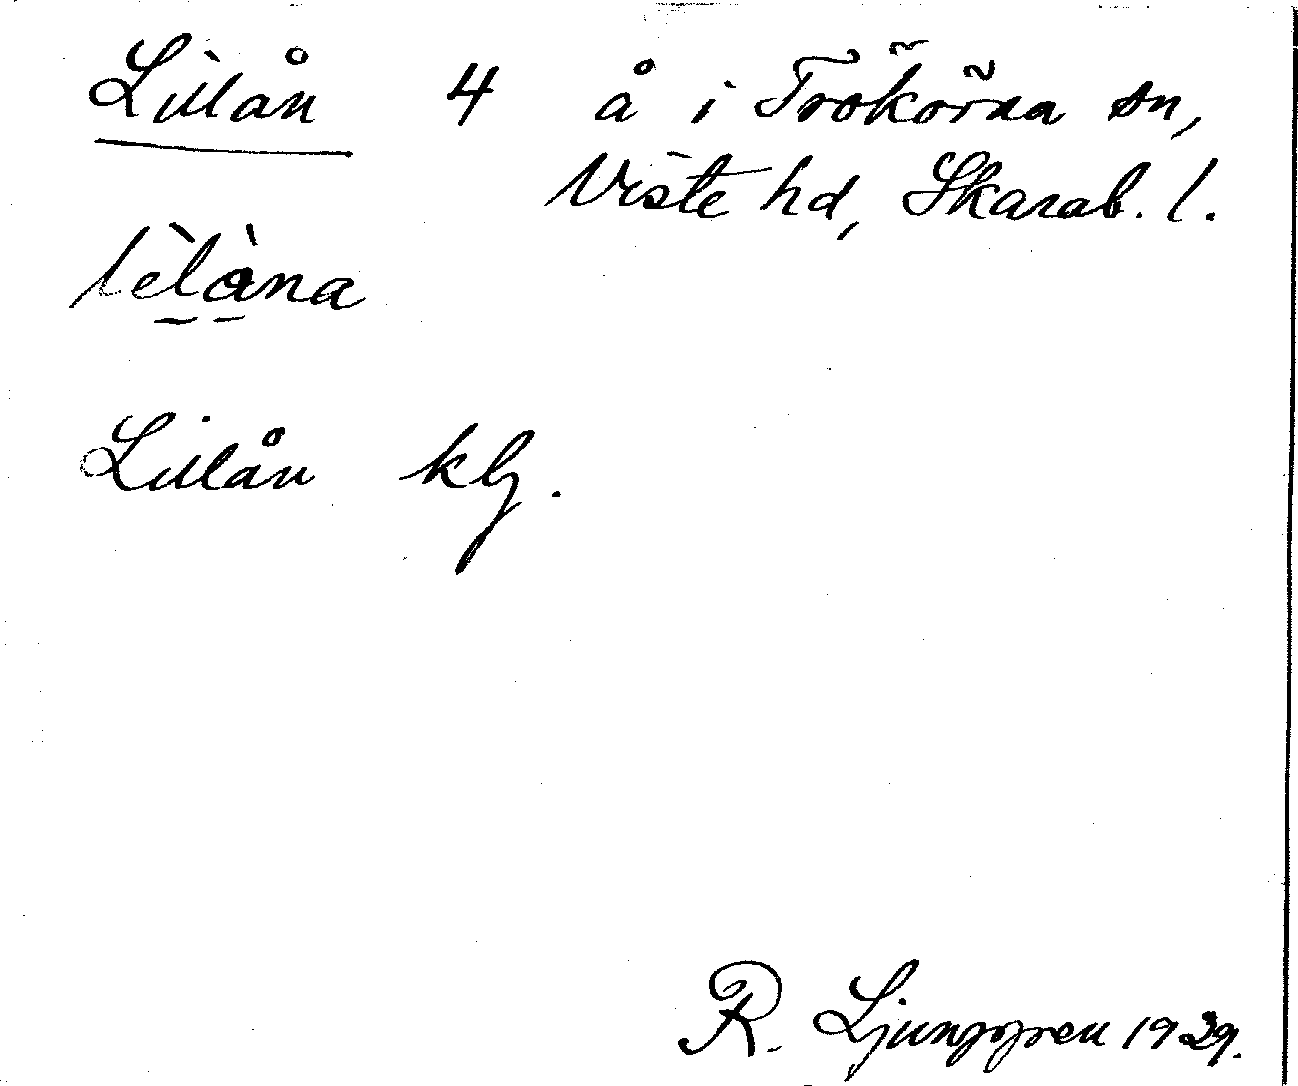 Lillån 4 å i Trökörna sn,
Viste hd, Skarab. l.
lèlàna
Lillån klj.
R. Ljunggren 1929.